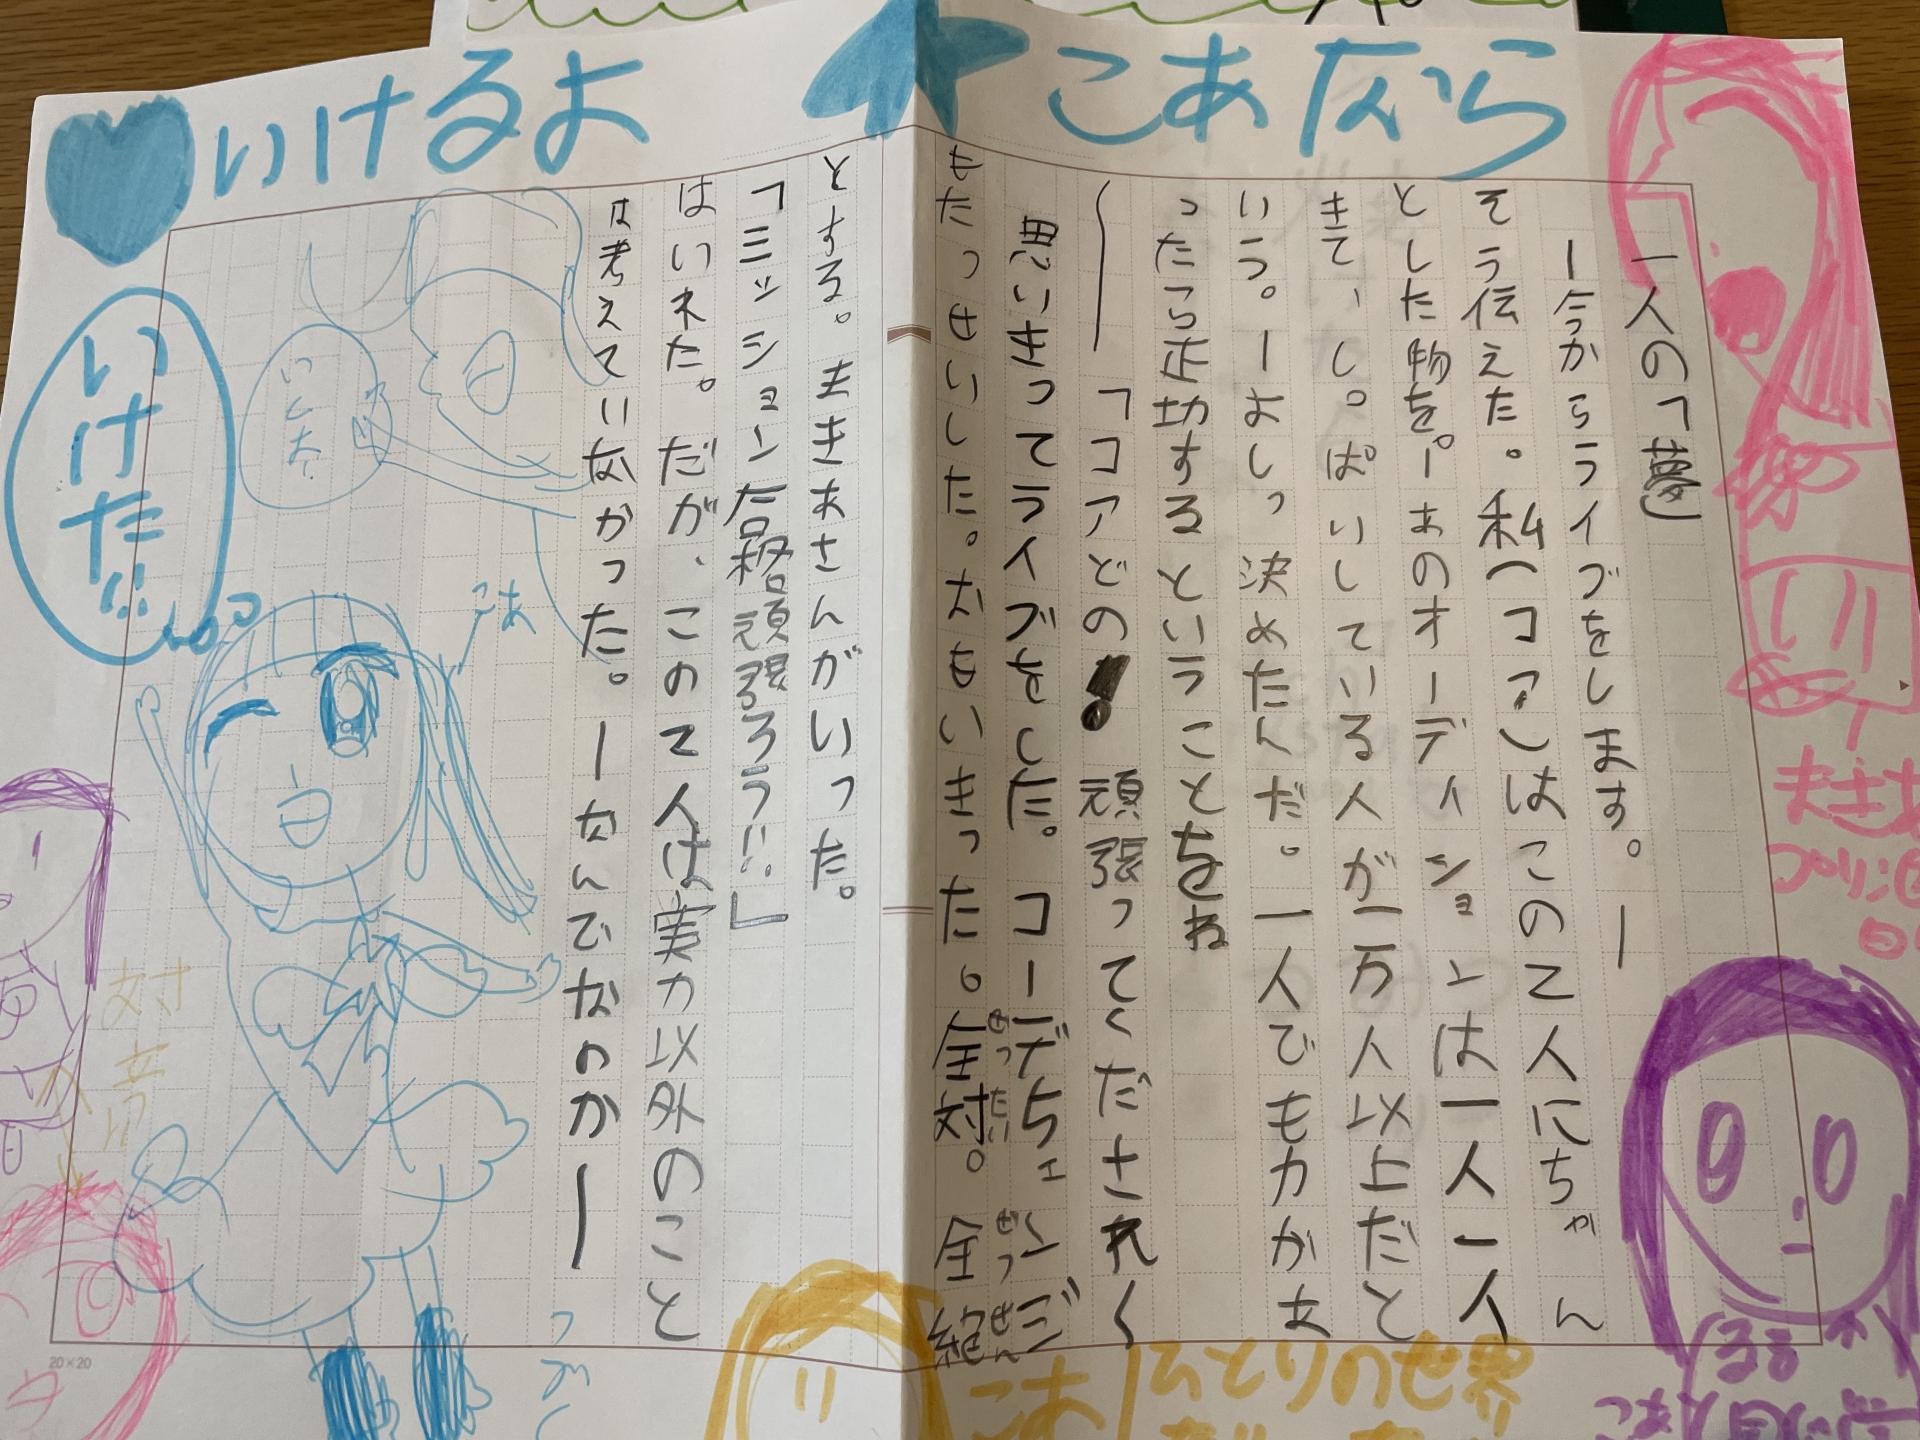 こあなら
いけるよ
一人の「夢」
ー今からライブをします。ー
そう伝えた。私(コア)はこの2人にちゃん
とした物を。ーあのオーディションは一人一人
きて、し。ぱいしている人が一万人以上だと
いう。ーよしっ決めたんだ。一人でもカかな
ったら正功するということをね
「コアどの!頑張ってくだされ〜
思いきってライブをした。コーデちェンジ
もたっせいした。おもいきった。全対。全絶
ぜったい
ぜつせん
とする。まきあさんがいった。
「ミッション合格頑張ろう!!」
はいれた。だが、この2人は実力以外のこと
は考えていなかった。ーなんでなのかー
いけた!!
こあ
対
ひとりの世界
こあ
20×20